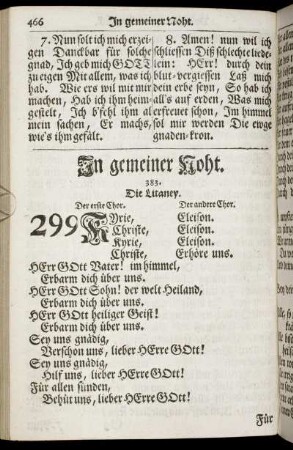 466 In gemeiner Noht.
7. Nun solt ich mich erzei-
gen Danckbar für solche
gnad, Jch geb mich GOTT
zueigen Mit allem, was ich
hab. Wie ers wil mit mir
machen, Hab ich ihm heim-
gestelt, Jch b'fehl ihm al
mein sachen, Er machs,
wie's ihm gefält.
8. Amen! nun wil ich
schliessen Diß schlechte lied-
lein: HErr! durch dein
blut-vergiessen Laß mich
dein erbe seyn, So hab ich
all's auf erden, Was mich
erfreuet schon, Jm himmel
sol mir werden Die ewge
gnaden-kron.
In gemeiner Noht.
383.
Die Litaney.
Der erste Chor. Der andere Chor.
299 KYrie, Eleison.
Christe, Eleison.
Kyrie, Eleison.
Christe, Erhöre uns.
HErr GOtt Vater! im himmel,
Erbarm dich über uns.
HErr GOtt Sohn! der welt Heiland,
Erbarm dich über uns.
HErr GOtt heiliger Geist!
Erbarm dich über uns.
Sey uns gnädig,
Verschon uns, lieber HErre GOtt!
Sey uns gnädig,
Hilf uns, lieber HErre GOtt!
Für allen sünden,
Behüt uns, lieber HErre GOtt!
Für